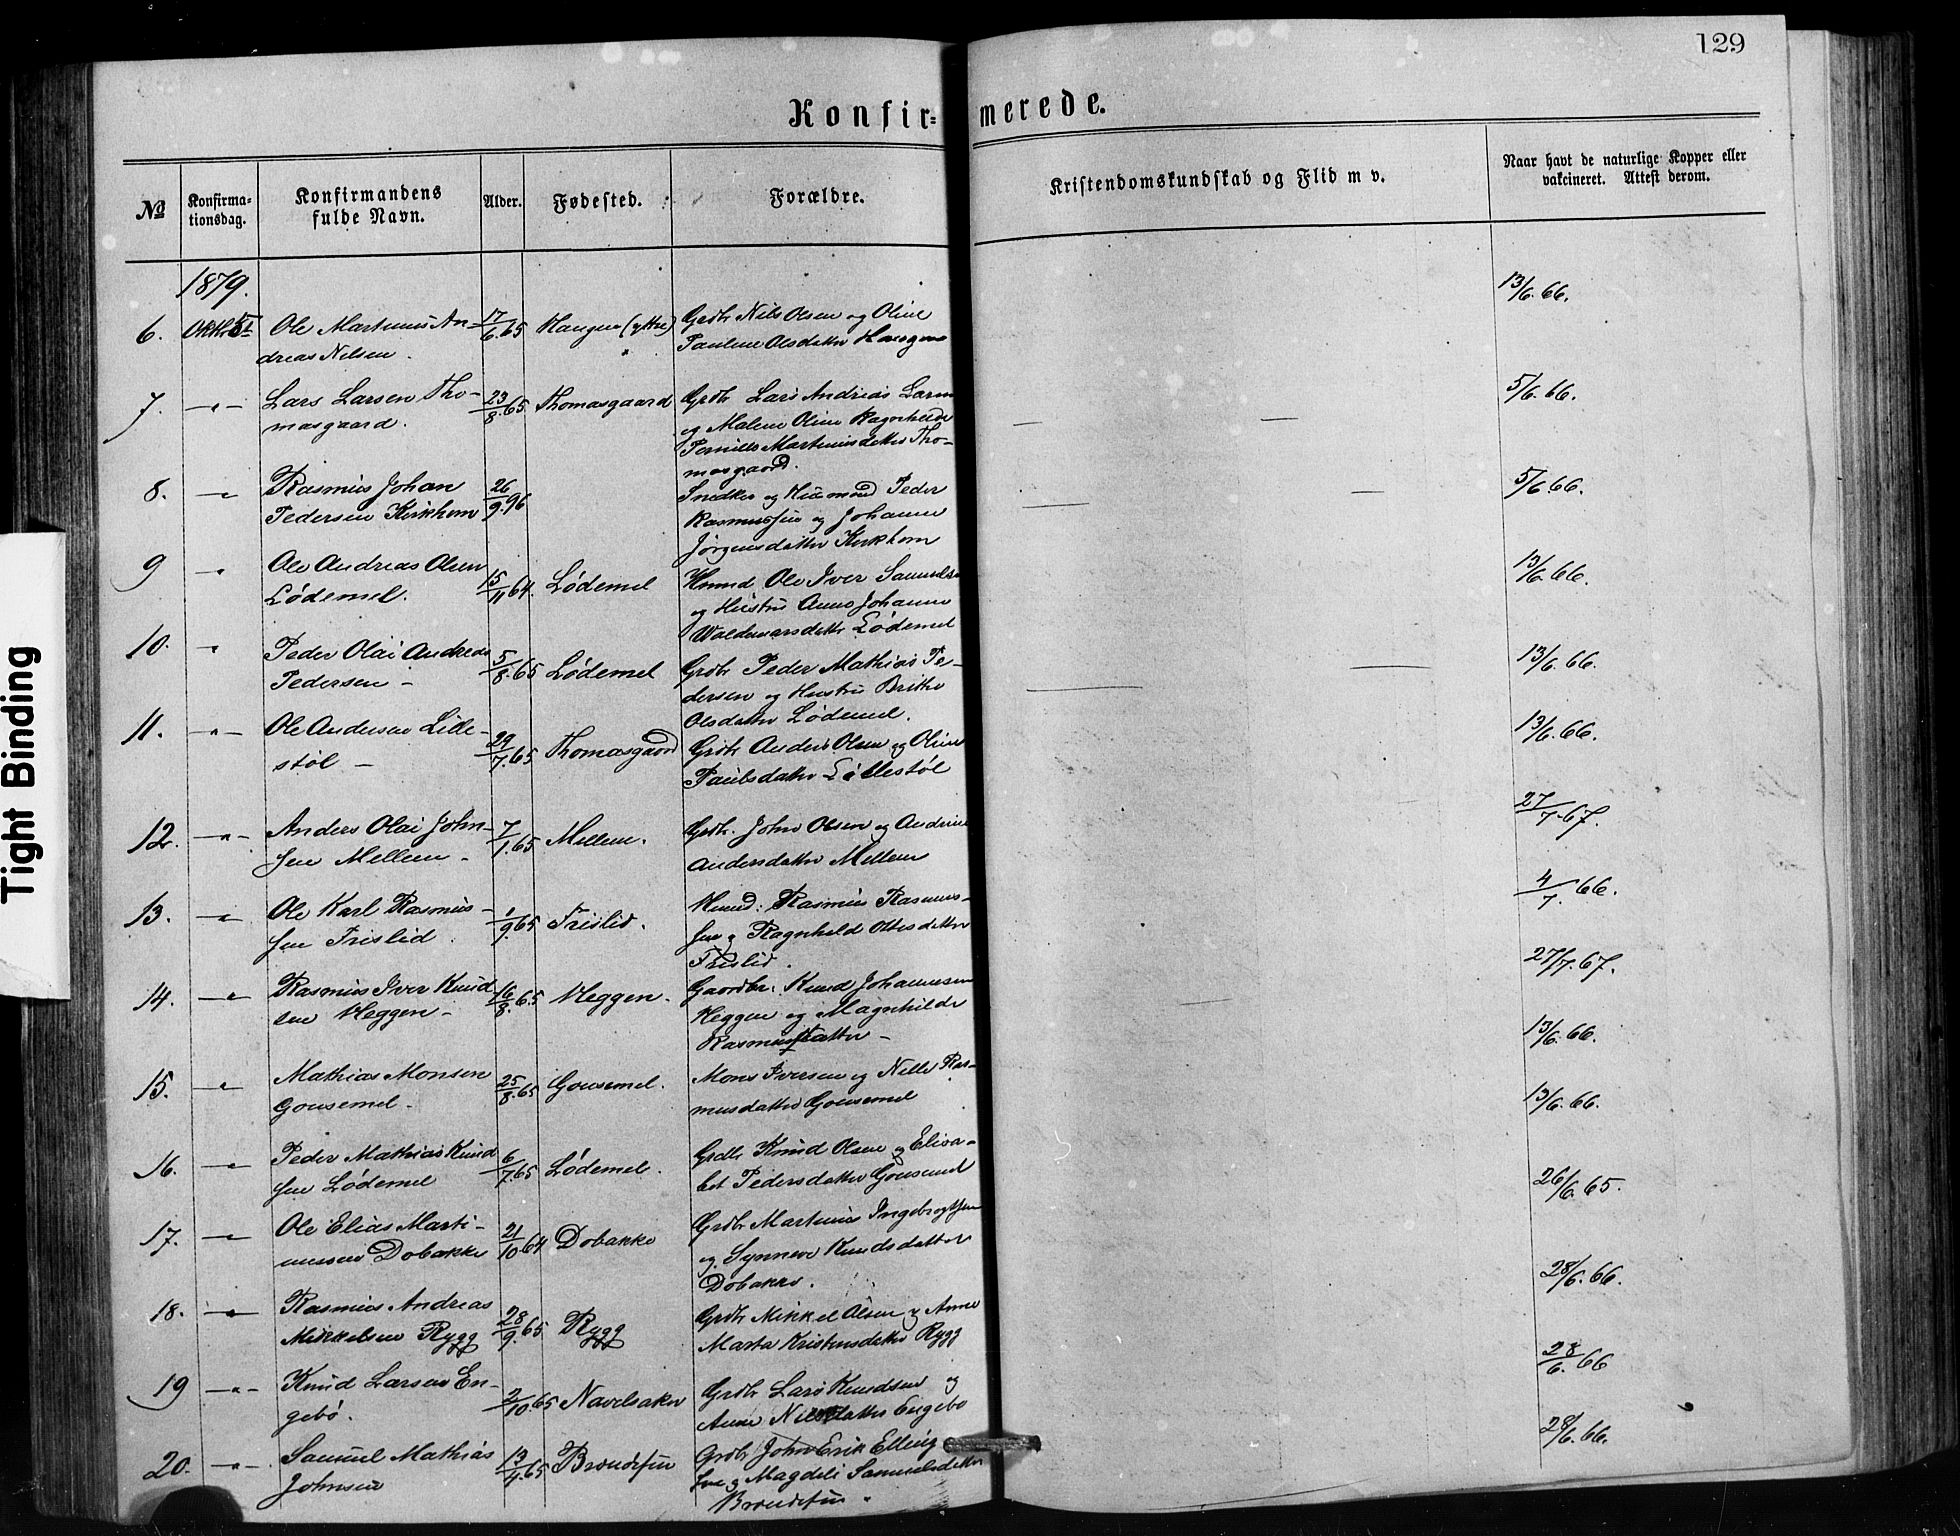 129
Konfir= merede.
№
Konfirma-
tionsdag.
Konfirmandens
fulde Navn.
Alder.
Fødested.
Forældre.
Kristendomskundskab og Flid m v.
Naar havt de naturlige Kopper eller
vakcineret. Attest derom.
1879.
6. Oktbr. 5t Ole Martinus An- 17/6.65 Haugen (ytre) Grdbr Nils Olsen og Oline 13/6.66.
dreas Nelsen. Pauline Olsdatter Haugen
7. -"- Lars Larsen Tho- 23/8.65 Thomasgaard Grdbr Lars Andreas Larsen 5/6.66.
masgaard. og Malene Oline Ragnhilde
Pernille Martinusdatter Tho-
masgaard.
8. -"- Rasmus Johan 26/9.96 Snedker og Husmand Peder 5/6.66.
Pedersen Kirkhorn Rasmussen og Johanne
Jørgensdatter Kirkhorn
9 " Ole Andreas Olsen 15/11 64. Lødemel Hmnd Ole Iver Samuelsen 13/6.66.
Lødemel. og Hustru Anne Johanne
Waldemarsdatter Lødemel
10. " Peder Olai Andreas 5/8.65 Lødemel Grdbr Peder Mathias Pe- 13/6.66.
Pedersen - dersen og Hustru Brithe
Olsdatter Lødemel.
11. -"- Ole Andersen Lille- 29/7.65 Thomasgaard Grdbr Anders Olsen og Oline 13/6.66.
støl - Paulsdatter Lillestøl
12. -"- Anders Olai John- 7/1.65 Mellem. Grdbr. John Olsen og Andrine 27/7.67.
sen Mellem - Andersdatter Mellem
13. -"- Ole Karl Rasmus- 1/9.65 Frislid. Hmnd: Rasmus Rasmus- 4/7.66.
sen Frislid. sen og Ragnhild Olsdatter
Frislid.
14. -"- Rasmus Iver Knud 16/8.65 Heggen. Gaardbr. Knud Johannesen 27/7.67.
sen Heggen - Heggen og Magnhilde
Rasmusdatter -
15. -"- Mathias Monsen 25/8.65 Gousemel. Mons Iversen og Nelle Ras- 13/6.66.
Gousemel - musdatter Gousemel 13/6.66.
16. -"- Peder Mathias Knud 6/7.65 Lødemel. Grdbr Knud Olsen og Elisa-
sen Lødemel bet Pedersdatter Gousemel 26/6.65.
17. -"- Ole Elias Marti- 21/10 64 Dobakke Grdbr Martinus Ingebrigtsen
nussen Dobakke og Synneve Knudsdatter
Dobakke. 28/6.66.
18. -"- Rasmus Andreas 28/9.65 Rygg Grdbr Mikkel Olsen og Anne
Mikkelsen Rygg Marta Kristensdatter Rygg
28/6.66
19 -"- Knud Larsen En- 2/10.65 Navelsaker Grdbr Lars Knudsen og
gebø. Anne Nilsdatter Engebø 28/6.66.
20. -"- Samuel Mathias 13/4.65 Brændsfur Grdbr John Erik Elling
Johnsen sen og Magdeli Samuelsdatter
Brændsfur.
Tight Binding